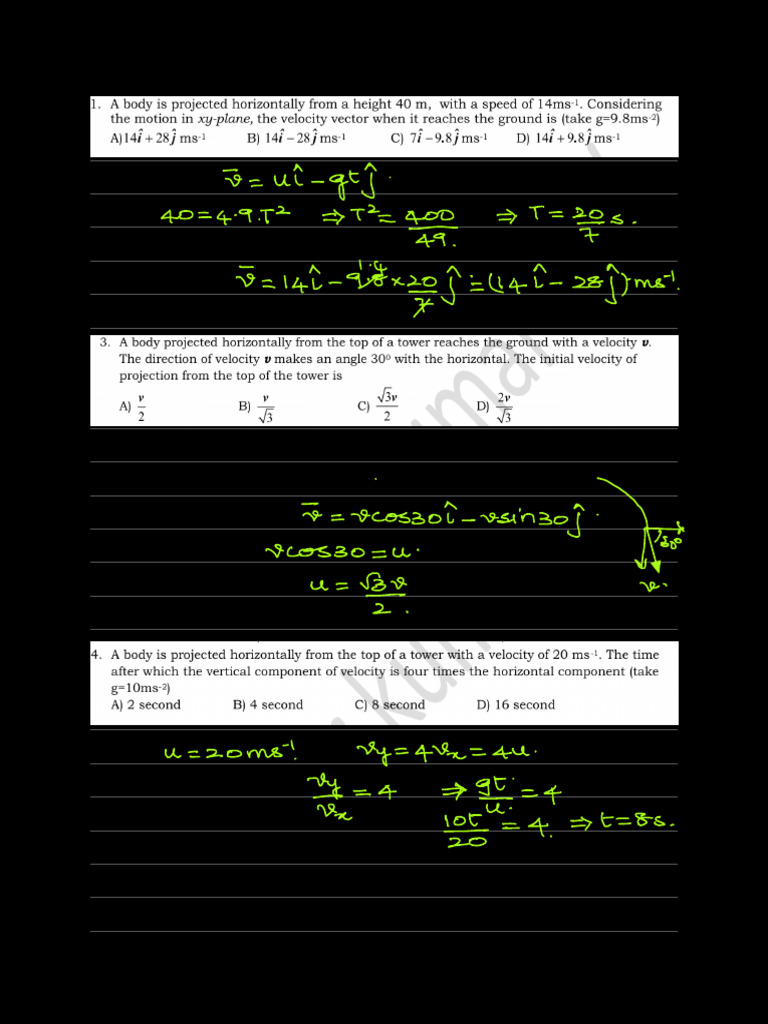 1. A body is projected horizontally from a height 40 m, with a speed of 14ms-1. Considering
the motion in xy-plane, the velocity vector when it reaches the ground is (take g=9.8ms-2)
A)14î + 28ĵ ms-1 B) 14î − 28ĵ ms-1 C) 7î − 9.8ĵ ms-1 D) 14î + 9.8ĵ ms-1
v̄ = uî − gtĵ.
40 = 4.9.T² ⇒ T² = 400/49. ⇒ T = 20/7 s.
1.4
v̄ = 14î − 9.8 × 20/7 ĵ = (14î − 28ĵ) ms⁻¹.
3. A body projected horizontally from the top of a tower reaches the ground with a velocity v.
The direction of velocity v makes an angle 30o with the horizontal. The initial velocity of
projection from the top of the tower is
A) v/2 B) v/√3 C) √3v/2 D) 2v/√3
v̄ = vcos30î − vsin30ĵ.
30°
vcos30 = u.
v.
u = √3v/2.
kumar
4. A body is projected horizontally from the top of a tower with a velocity of 20 ms-1. The time
after which the vertical component of velocity is four times the horizontal component (take
g=10ms-2)
A) 2 second B) 4 second C) 8 second D) 16 second
u = 20ms⁻¹. vy = 4vx = 4u.
vy/vx = 4 ⇒ gt/u = 4
10t/20 = 4. ⇒ t = 8s.